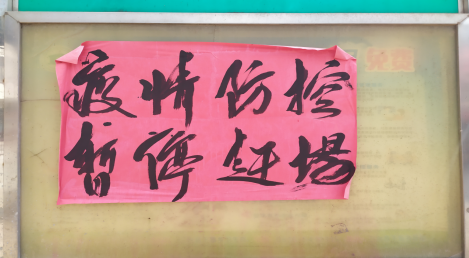 疫情防控
暂停赶場